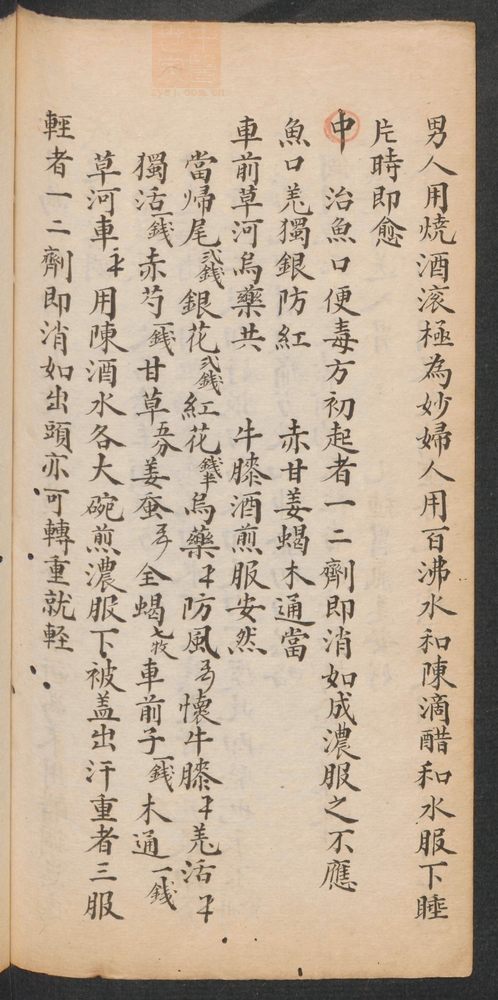 男人用燒酒滚極為妙婦人用百沸水和陳滴醋和水服下睡
片時即愈
中 治魚口便毒方初起者一二劑即消如成濃服之不應
魚口羗獨銀防紅 赤甘姜蝎木通當
車前草河烏藥共 牛膝酒煎服安然
當帰尾弍銭銀花弍銭紅花烏藥防風懷牛膝羗活
獨活一銭赤芍一銭甘草五分姜蚕全蝎七枚車前子一銭木通一銭
草河車用陳酒水各大碗煎濃服下被盖出汗重者三服
輕者一二劑即消如出頭亦可轉重就輕